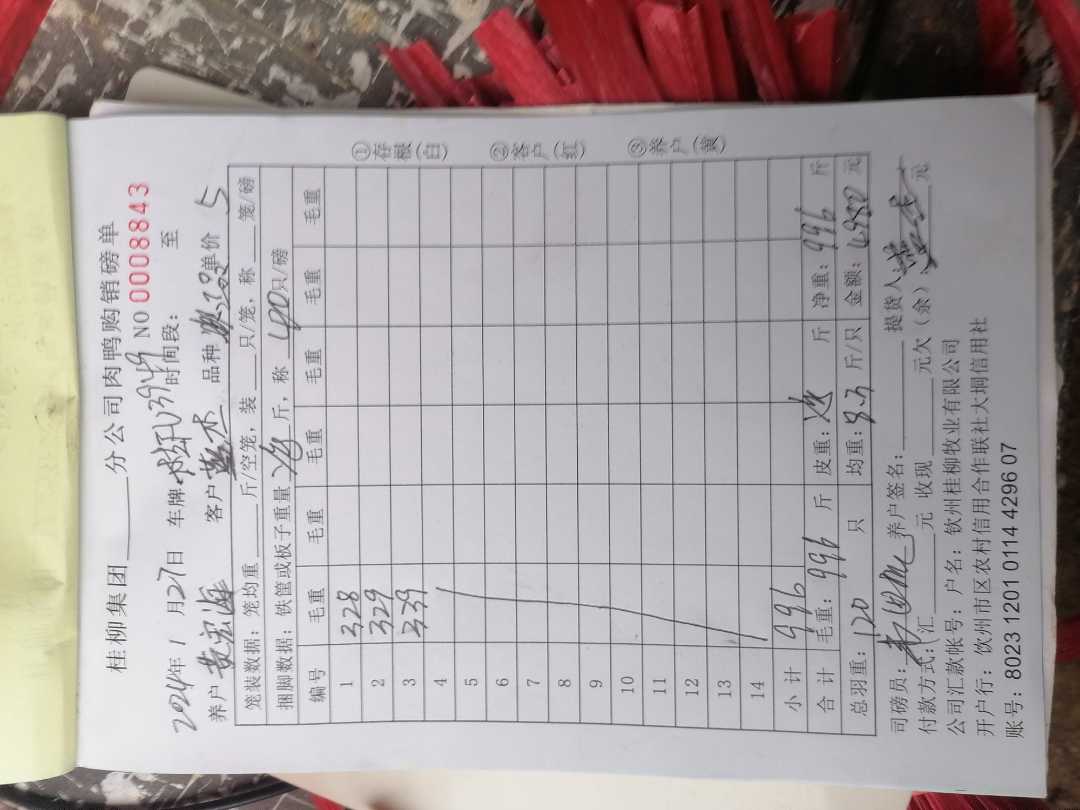 桂柳集团____分公司肉鸭购销磅单
2024年1月27日 车牌 3949 NO 0008843
时间段: 至
养户 黄宏海 客户 品种 单价 5
笼装数据: 笼均重____斤/空笼, 装____只/笼, 称____笼/磅
捆脚数据: 铁筐或板子重量 斤, 称 40 只/磅
编号 毛重 毛重 毛重 毛重 毛重 毛重
1 328
2 329
3 339
4
5
6
7
8
9
10
11
12
13
14
小计 996
合计 毛重: 996 斤 皮重: 斤 净重: 996 斤
总羽重: 120 只 均重: 8.3 斤/只 金额: 4980 元
司磅员: 养户签名: 提货人:
付款方式: 汇____元 收现____元欠(余)____元
公司汇款帐号: 户名: 钦州桂柳牧业有限公司
开户行: 饮州市区农村信用合作联社大垌信用社
账号: 8023 1201 0114 4296 07
①存根(白) ②客户(红) ③养户(黄)